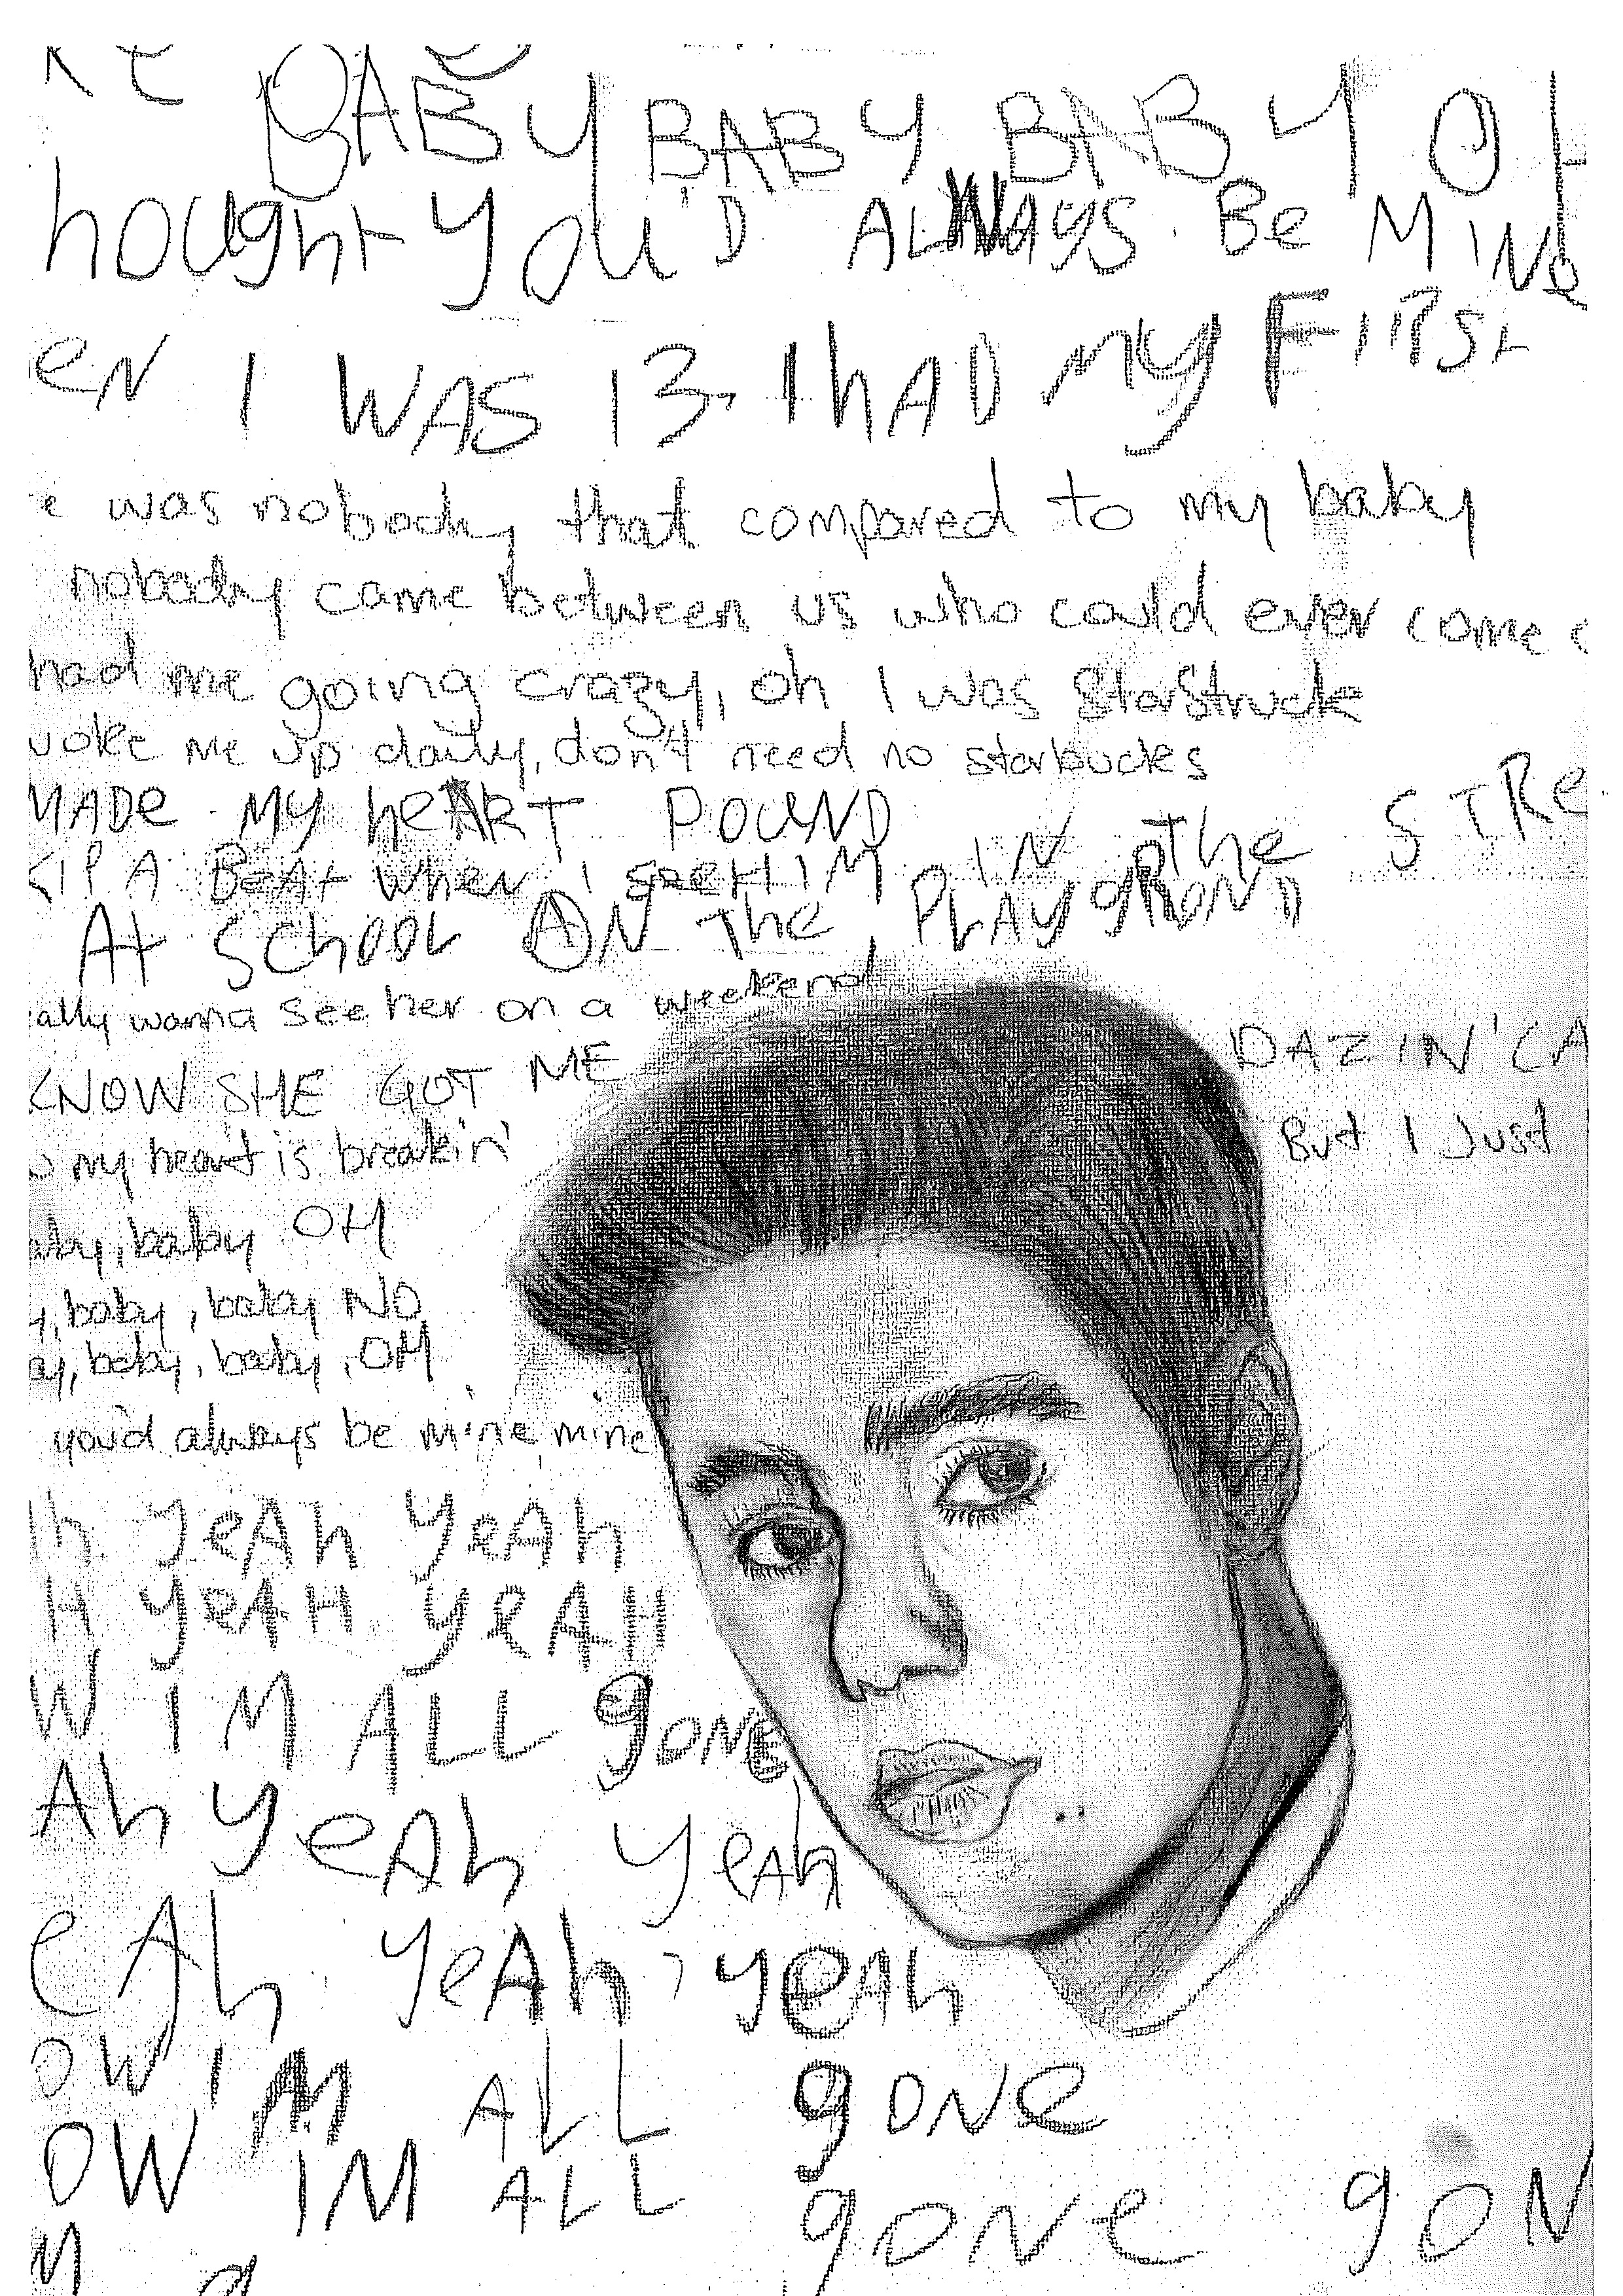 BABY BABY BABY OH
hought you'D ALWAYS Be MINe
eN I WAS 13 I hAD my FIRSt
e was nobody that compared to my baby
nobody came between us who could ever come
had me going crazy, oh I was starstruck
woke me up daily, don't need no starbucks
MADe MY heART POUND
KIP A BeAt when i see HIM IN The STRe
At SChOOL ON The PLAYgROUND
ally wanna see her on a weekend
KNOW SHE GOT ME DAZIN' CA
my heart is breakin' But I Just
aby, baby OH
y, baby, baby NO
ay, baby, baby, OH
you'd always be mine mine
h yeAh yeAh
H yeAH yeAH
W IM ALL gone
Ah yeAh yeAh
eAh yeAh, yeAh
OW IM ALL gONe
OW IM ALL gONe gON